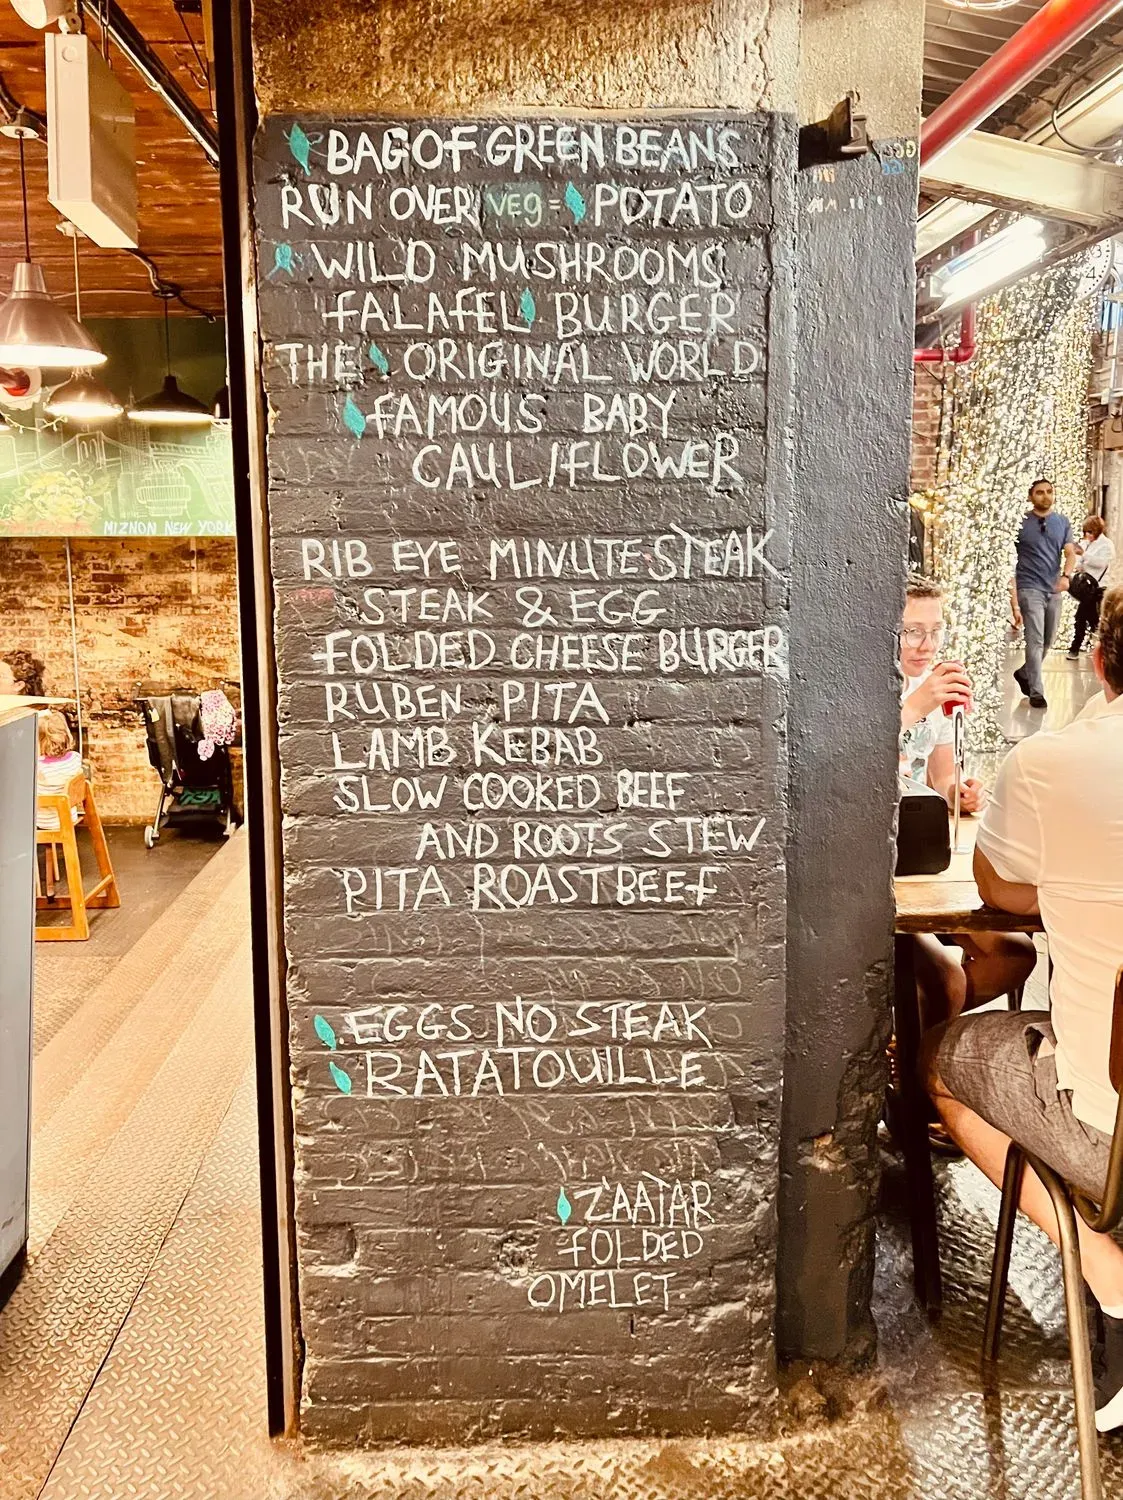 BAG OF GREEN BEANS
RUN OVER VEG = POTATO
WILD MUSHROOMS
FALAFEL BURGER
THE ORIGINAL WORLD
FAMOUS BABY
CAULIFLOWER
RIB EYE MINUTE STEAK
STEAK & EGG
FOLDED CHEESE BURGER
RUBEN PITA
LAMB KEBAB
SLOW COOKED BEEF
AND ROOTS STEW
PITA ROASTBEEF
EGGS NO STEAK
RATATOUILLE
ZAATAR
FOLDED
OMELET
MIZNON NEW YORK